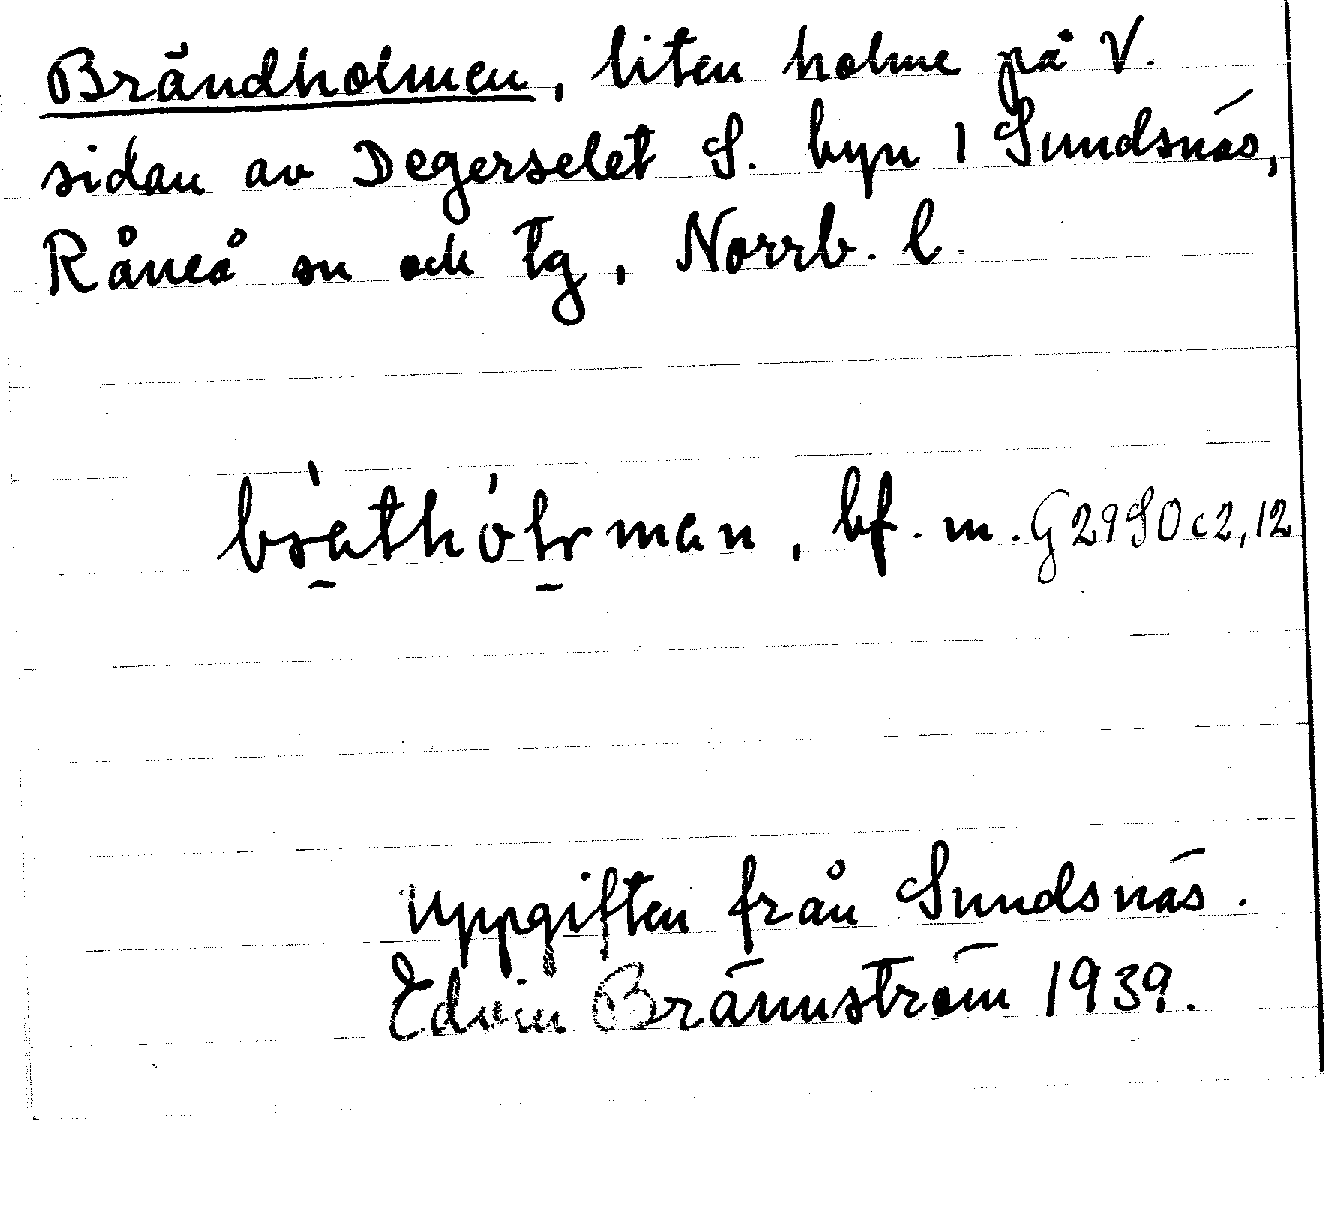 Brändholmen, liten holme på V.
sidan av Degerselet S. byn i Sundsnäs,
Råneå sn och tg, Norrb. l.
bf. m. G 29 S O c 2, 12
Uppgiften från Sundsnäs.
Edvin Brännström 1939.